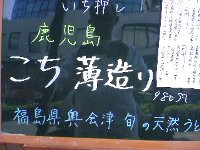 いち押し
鹿児島
こち 薄造り
980円
福島県奥会津 旬の天然うど